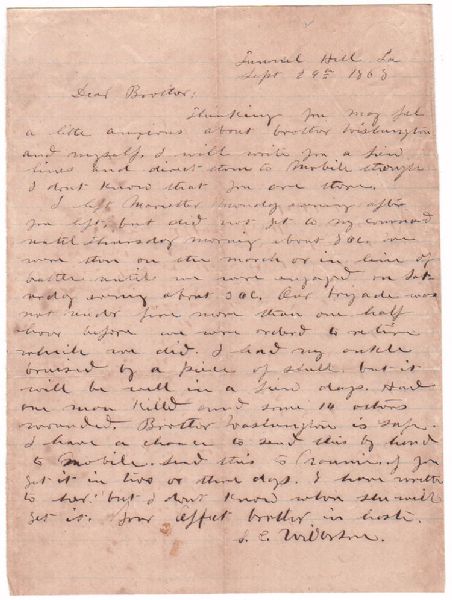 Tunnel Hill Ga
Sept 29th 1863
Dear Brother:
Thinking you may feel
a little anxious about brother Washington
and myself. I will write you a few
lines and direct them to Mobile though
I dont know that you are there.
I left Marietta sunday evening after
you left, but did not get to my command
until thursday morning about 3 oc. we
were then on the march or in line of
battle until we were engaged on Sat-
urday evening about 3 oc. Our brigade was
not under fire more than one half
hour before we were orderd to retire
which we did. I had my ankle
bruised by a piece of shell but it
will be well in a few days. Had
one man killd and some 14 others
wounded. Brother Washington is safe.
I have a chance to send this by hand
to Mobile. send this to if you
get it in two or three days. I have written
to her but I dont know when she will
get it. Your Affect brother in haste.